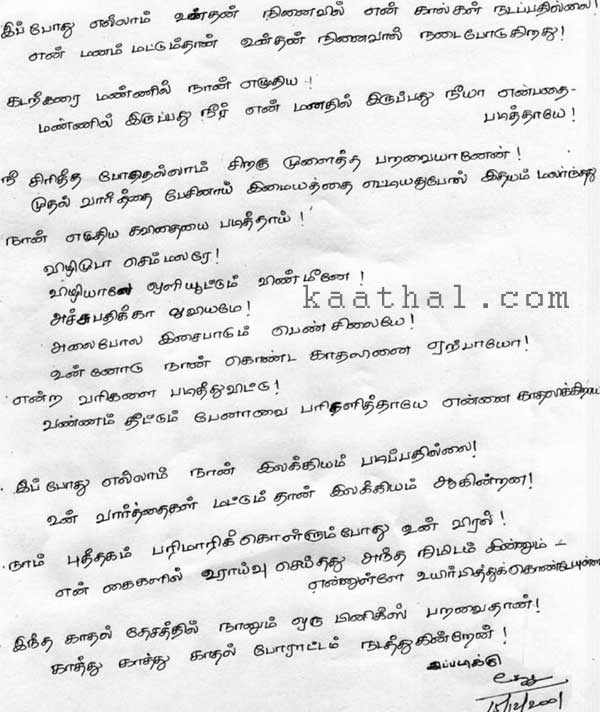 இப் போது எல்லாம் உன்தன் நினைவில் என் கால்கள் நடப்பதில்லை!
என் மனம் மட்டும்தான் உன்தன் நினைவால் நடைபோடுகிறது!
கடற்கரை மண்ணில் நான் எழுதிய !
மண்ணில் இருப்பது நீர் என் மனதில் இருப்பது நீயா என்பதை-
படித்தாயே!
நீ சிரித்த போதெல்லாம் சிறகு முளைத்த பறவையானேன்!
முதல் வார்த்தை பேசினாய் இமையத்தை எட்டியதுபோல் இதயம் மலர்ந்தது
நான் எழுதிய கவிதையை படித்தாய்!
விழிடுபா செம்மலரே!
விழியாலே ஒளியூட்டும் விண்மீனே!
அச்சுபதிக்கா ஓவியமே!
kaathal.com
அலைபோல இசைபாடும் பெண்சிலையே!
உன்னோடு நான் கொண்ட காதலனை ஏற்பாயோ!
என்ற வரிகளை படித்துவிட்டு!
வண்ணம் தீட்டும் பேனாவை பரிசளித்தாயே என்னை
இப் போது எல்லாம் நான் இலக்கியம் படிப்பதில்லை!
உன் வார்த்தைகள் மட்டும்தான் இலக்கியம் ஆகின்றன!
நாம் புத்தகம் பரிமாறிக்கொள்ளும்போது உன் விரல்!
என் கைகளில் உராய்வு செய்தது அந்த நிமிடம் இன்னும் -
என்னுள்ளே
இந்த காதல் தேசத்தில் நானும் ஒரு பினிக்ஸ் பறவைதான்!
காத்து காத்து காதல் போராட்டம் நடத்துகின்றேன்!
இப்படிக்கு
15/12/2001